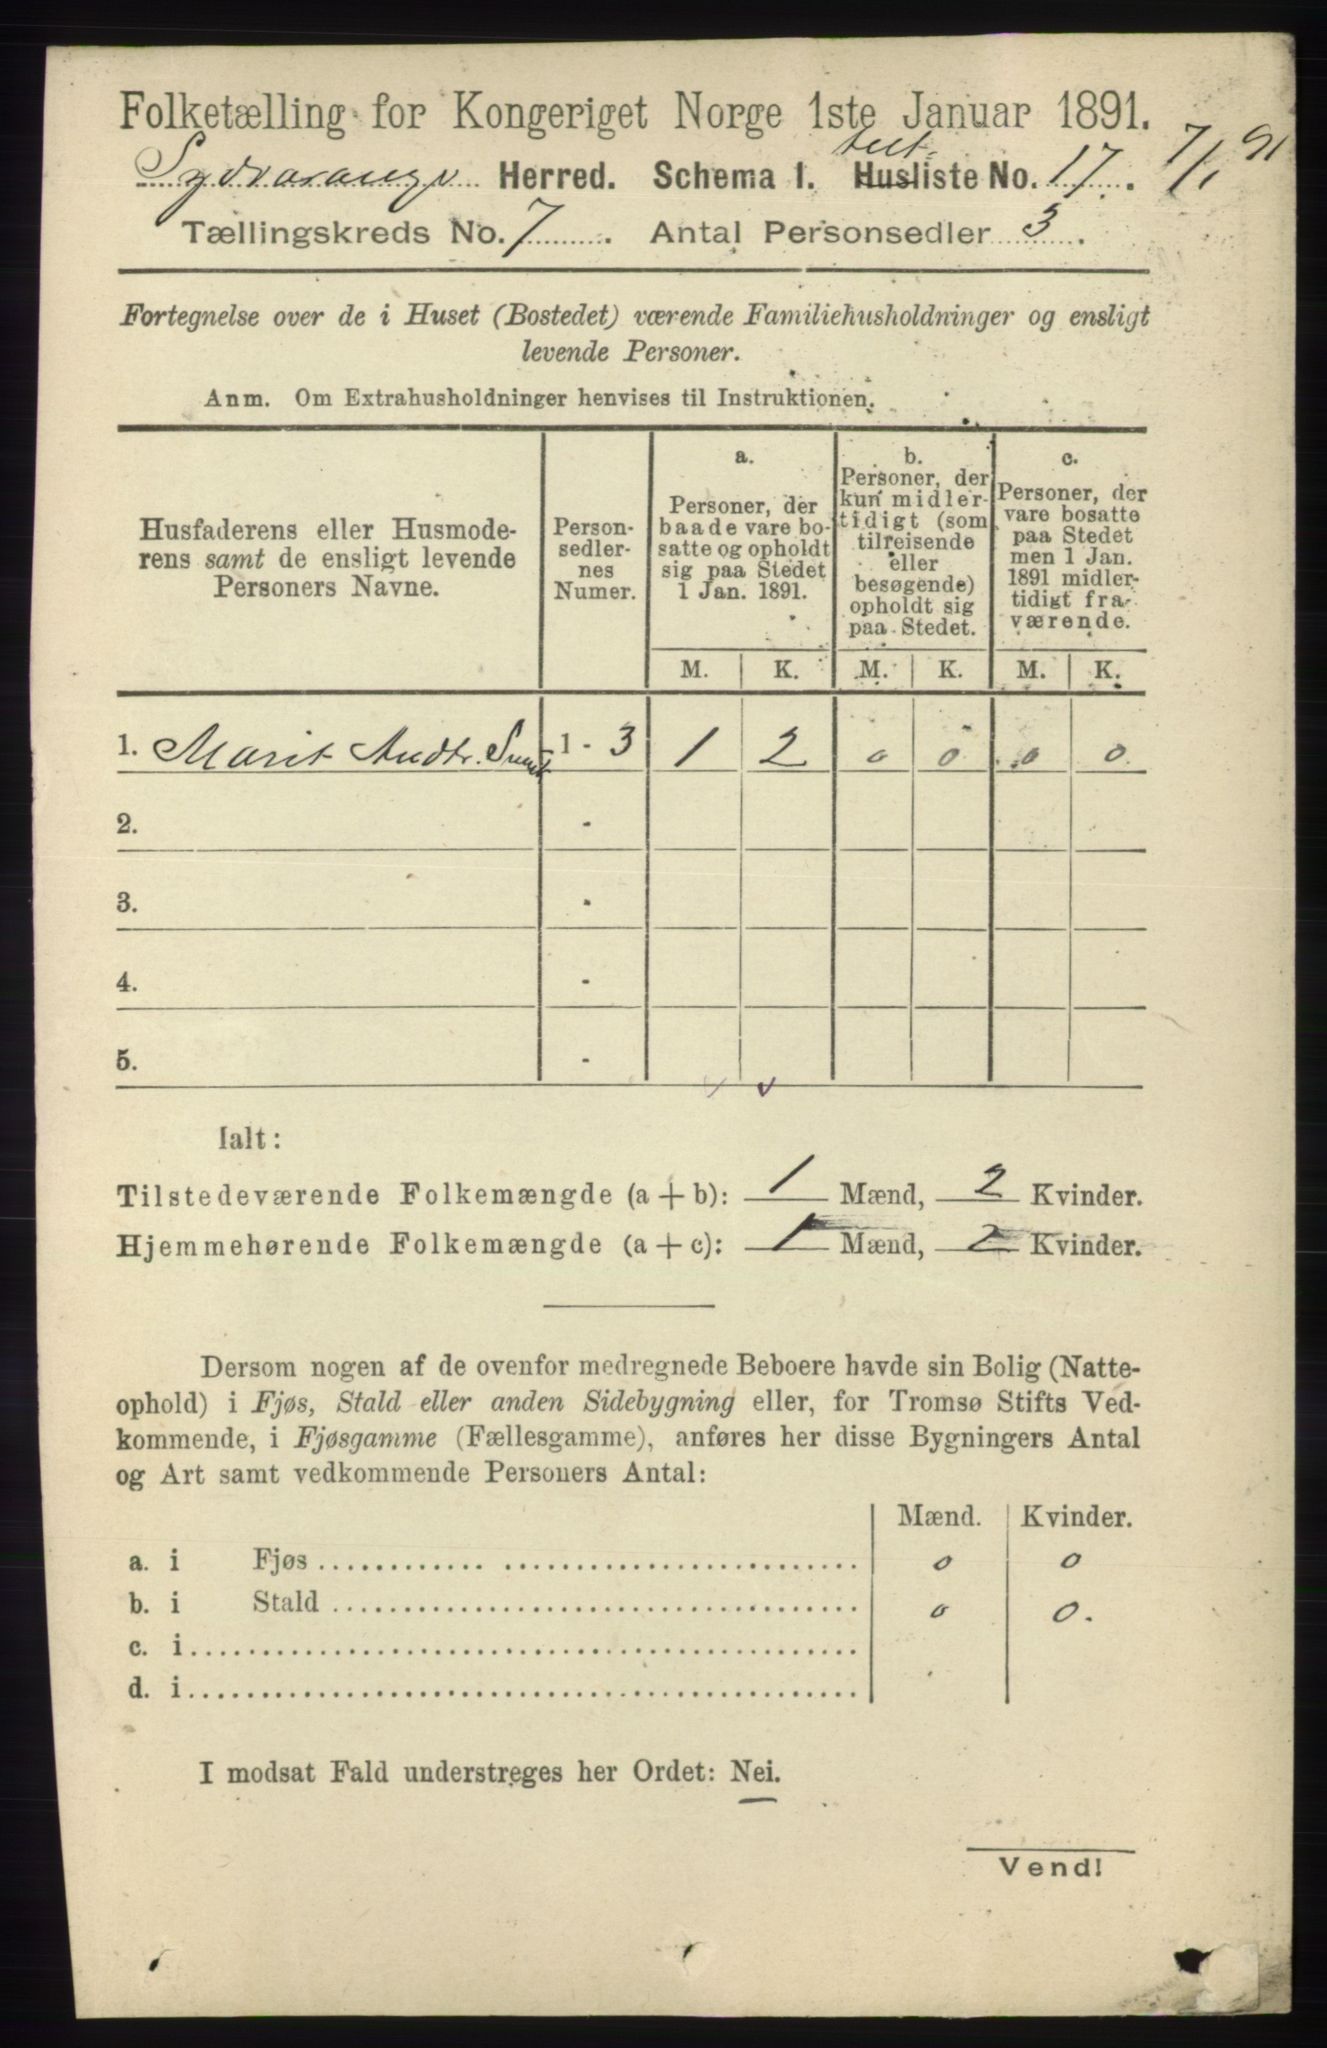 Folketælling for Kongeriget Norge 1ste Januar 1891.
Sydvaranger Herred. Schema 1. Husliste No. 17. 7/1 91
telt-
Tællingskreds No. 7. Antal Personsedler 3.
Fortegnelse over de i Huset (Bostedet) værende Familiehusholdninger og ensligt
levende Personer.
Anm. Om Extrahusholdninger henvises til Instruktionen.
Husfaderens eller Husmode-
rens samt de ensligt levende
Personers Navne.
Person-
sedler-
nes
Numer.
a.
Personer, der
baade vare bo-
satte og opholdt
sig paa Stedet
1 Jan. 1891.
b.
Personer, der
kun midler-
tidigt (som
tilreisende
eller
besøgende)
opholdt sig
paa Stedet.
c.
Personer, der
vare bosatte
paa Stedet
men 1 Jan.
1891 midler-
tidigt fra-
værende.
M. K. M. K. M. K.
1. Marit Andtr. 1 - 3 1 2 0 0 0 0
2. -
3. -
4. -
5. -
Ialt:
Tilstedeværende Folkemængde (a + b): 1 Mænd, 2 Kvinder.
Hjemmehørende Folkemængde (a + c): 1 Mænd, 2 Kvinder.
Dersom nogen af de ovenfor medregnede Beboere havde sin Bolig (Natte-
ophold) i Fjøs, Stald eller anden Sidebygning eller, for Tromsø Stifts Ved-
kommende, i Fjøsgamme (Fællesgamme), anføres her disse Bygningers Antal
og Art samt vedkommende Personers Antal:
Mænd. Kvinder.
a. i Fjøs 0 0
b. i Stald 0 0.
c. i
d. i
I modsat Fald understreges her Ordet: Nei.
Vend!